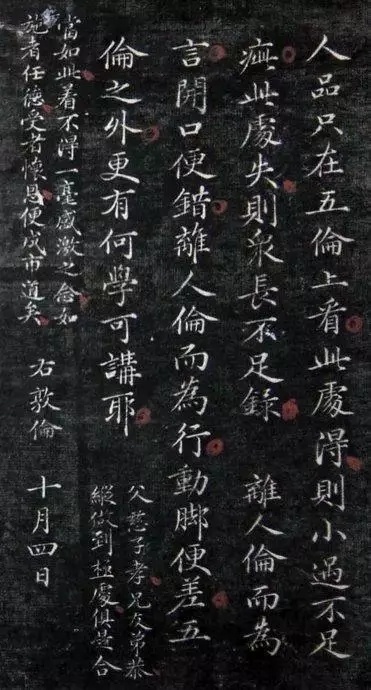 人品只在五倫上看此處得則小過不足
疵此處失則衆長不足錄 離人倫而為
言開口便錯離人倫而為行動脚便差五
倫之外更有何學可講耶
父慈子孝兄友弟恭
縱做到極處俱是合
當如此着不得一毫感激之念如
施者任德受者懷恩便成市道矣
右敦倫 十月四日